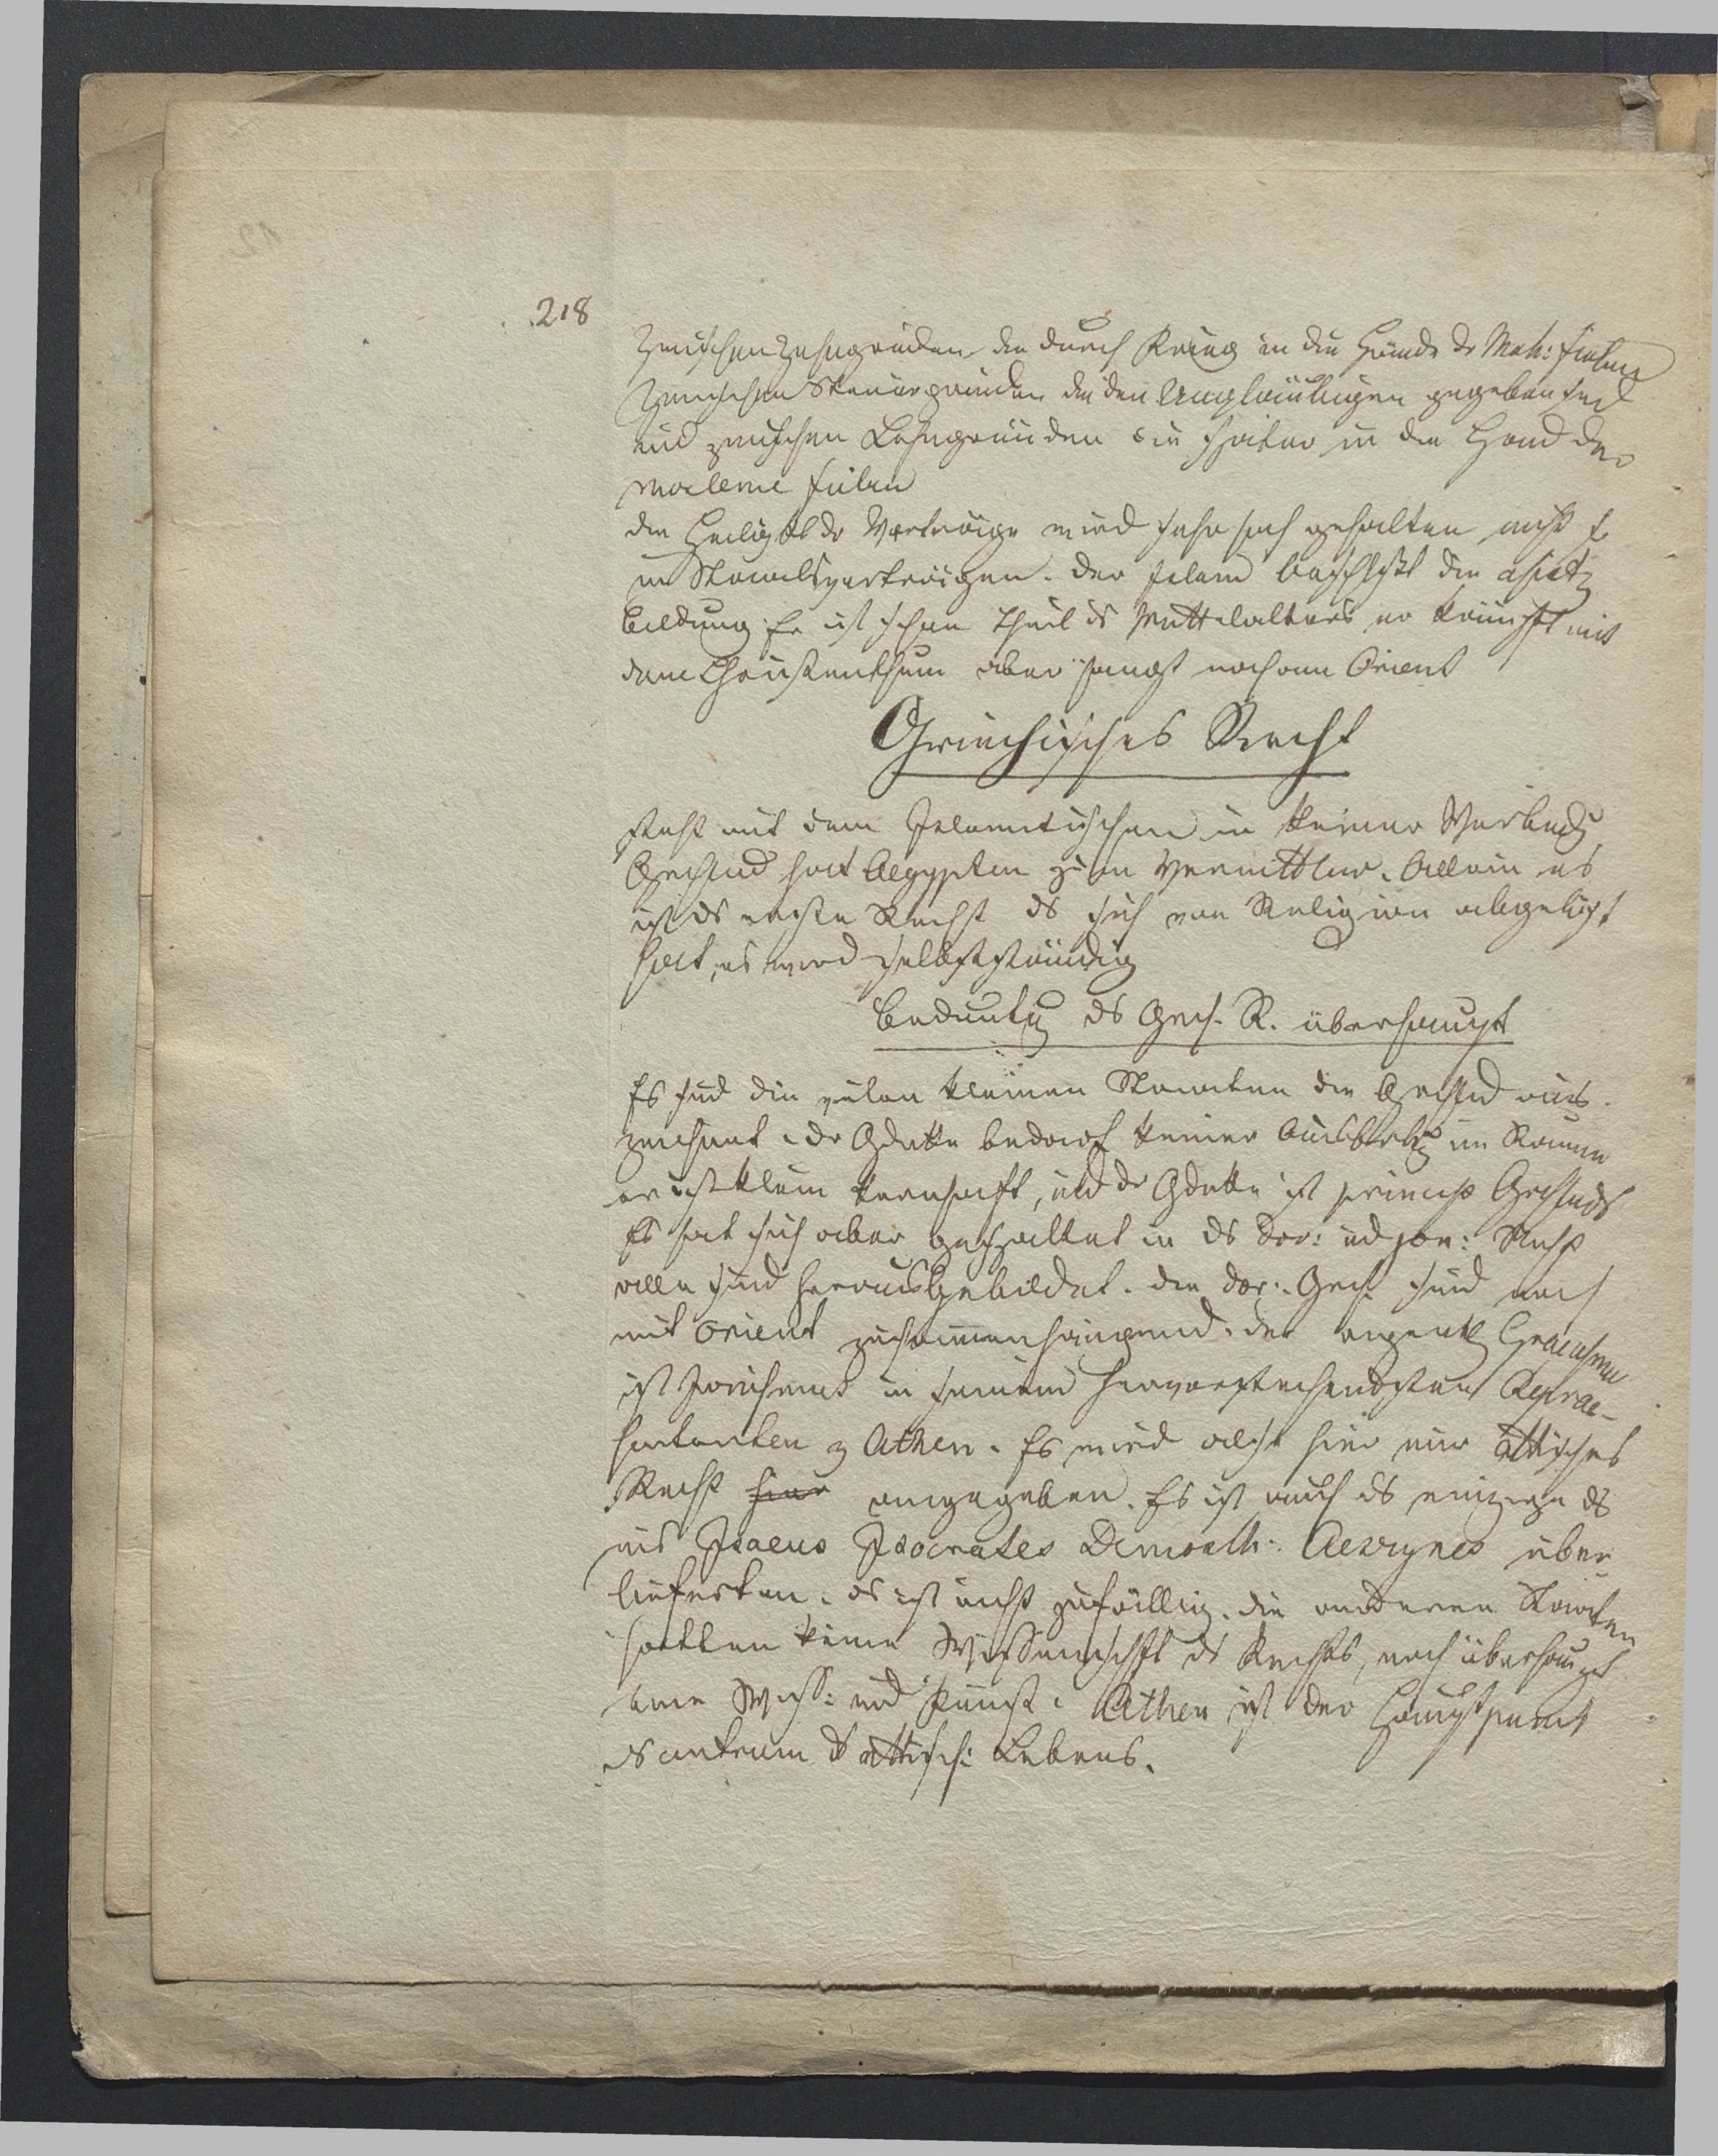 218
zwischen Zehngründen die durch Krieg in die Hände dr Moh: fielen
zwischen Steuergründen die den Ungläubigen gegeben sind
und zwischen Lehngründen die später in die Hand der
Moslemi fielen
die Heiligkt dr Verträge wird sehr hoch gehalten nicht s
in Staatsverträgen. der Islam beschließt die asiat
Bildung. Er ist schon Theil ds Mittelalters er kämpft mit
dem Christenthum aber hängt noch am Orient
Griechisches Recht
steht mit dem Islamitischen in keiner Verbindg
Grchlnd hat Aegypten zum Vermittler. Allein es
ist ds erste Recht ds sich von Religion abgelöst
hat, es wird selbstständig
Bedeutg ds Grch. R. überhaupt
Es sind die vielen kleinen Staaten die Grchlnd aus
zeichnet. dr Gdanke bedarf keiner Ausbreitg im Raume
er ist klein kernhaft, und dr Gdanke ist princip Grchlnds
Es hat sich aber gespaltet in ds Dor: und Jon: Recht
alle sind herausgebildet. die dor: Grch. sind noch
mit Orient zusammenhängend. der eigentl Graecismus
ist Jonismus in seinem hervorstechendsten Reprae-
sentanten z Athen. Es wird also hier nur attisches
Recht hier angegeben. Es ist auch ds einzige ds
uns Isaeus Isocrates Demosth: Aeschynes über
lieferten. es ist nicht zufällig. die anderen Staaten
hatten keine Wissenschft ds Rechts, noch überhaupt
eine Wiss: und Kunst. Athen ist der Hauptpunct
ds centrum ds attisch: Lebens.